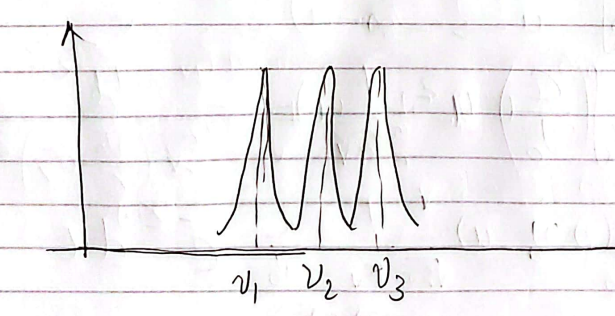 ν₁ ν₂ ν₃